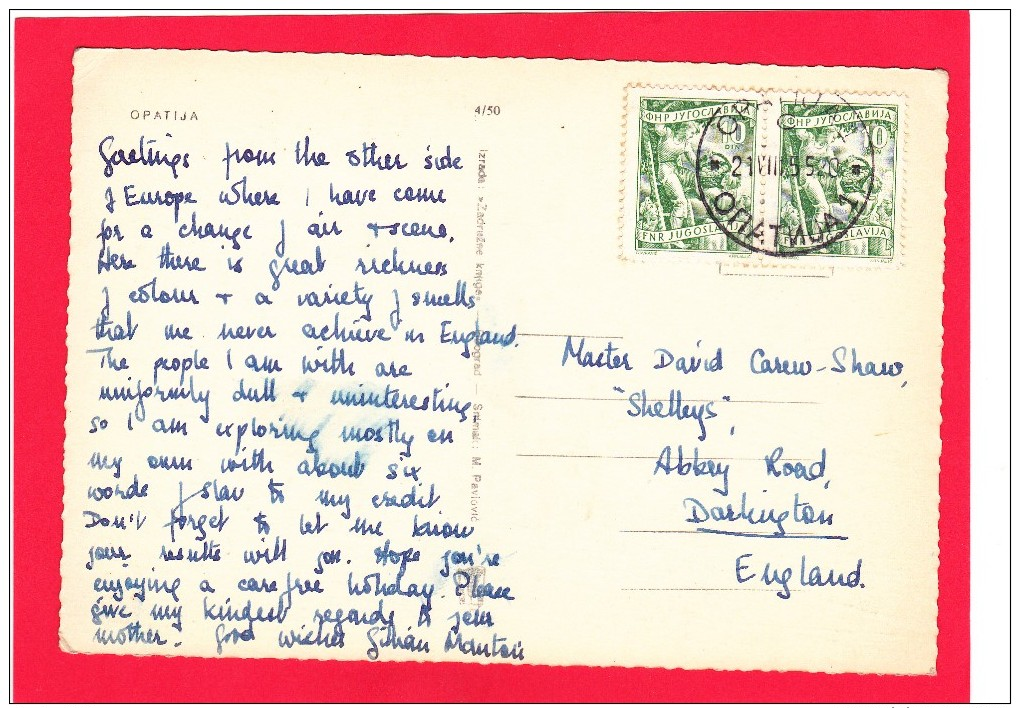 OPATIJA
4/50
Greetings from the other side
of Europe where I have come
for a change of air + scene.
Here there is great richness
of colour + a variety of smells
that we never achieve in England.
The people I am with are
uniformly dull + uninteresting
so I am exploring mostly on
my own with about six
words of slav to my credit.
Don't forget to let me know
your results will you. Hope you're
enjoying a care free holiday. Please
give my kindest regards to your
mother. Good wishes Gillian Manton
Izrada: »Zadružne knjige« Beograd — Snimak: M. Pavlović
ФНР ЈУГОСЛАВИЈА
10
DIN
FNR JUGOSLAVIJA
ФНР ЈУГОСЛАВИЈА
10
FNR JUGOSLAVIJA
21 VIII 55 20
ОПАТИЈА 1
Master David Carew-Shaw,
"Shelleys",
Abbey Road,
Darlington
England.